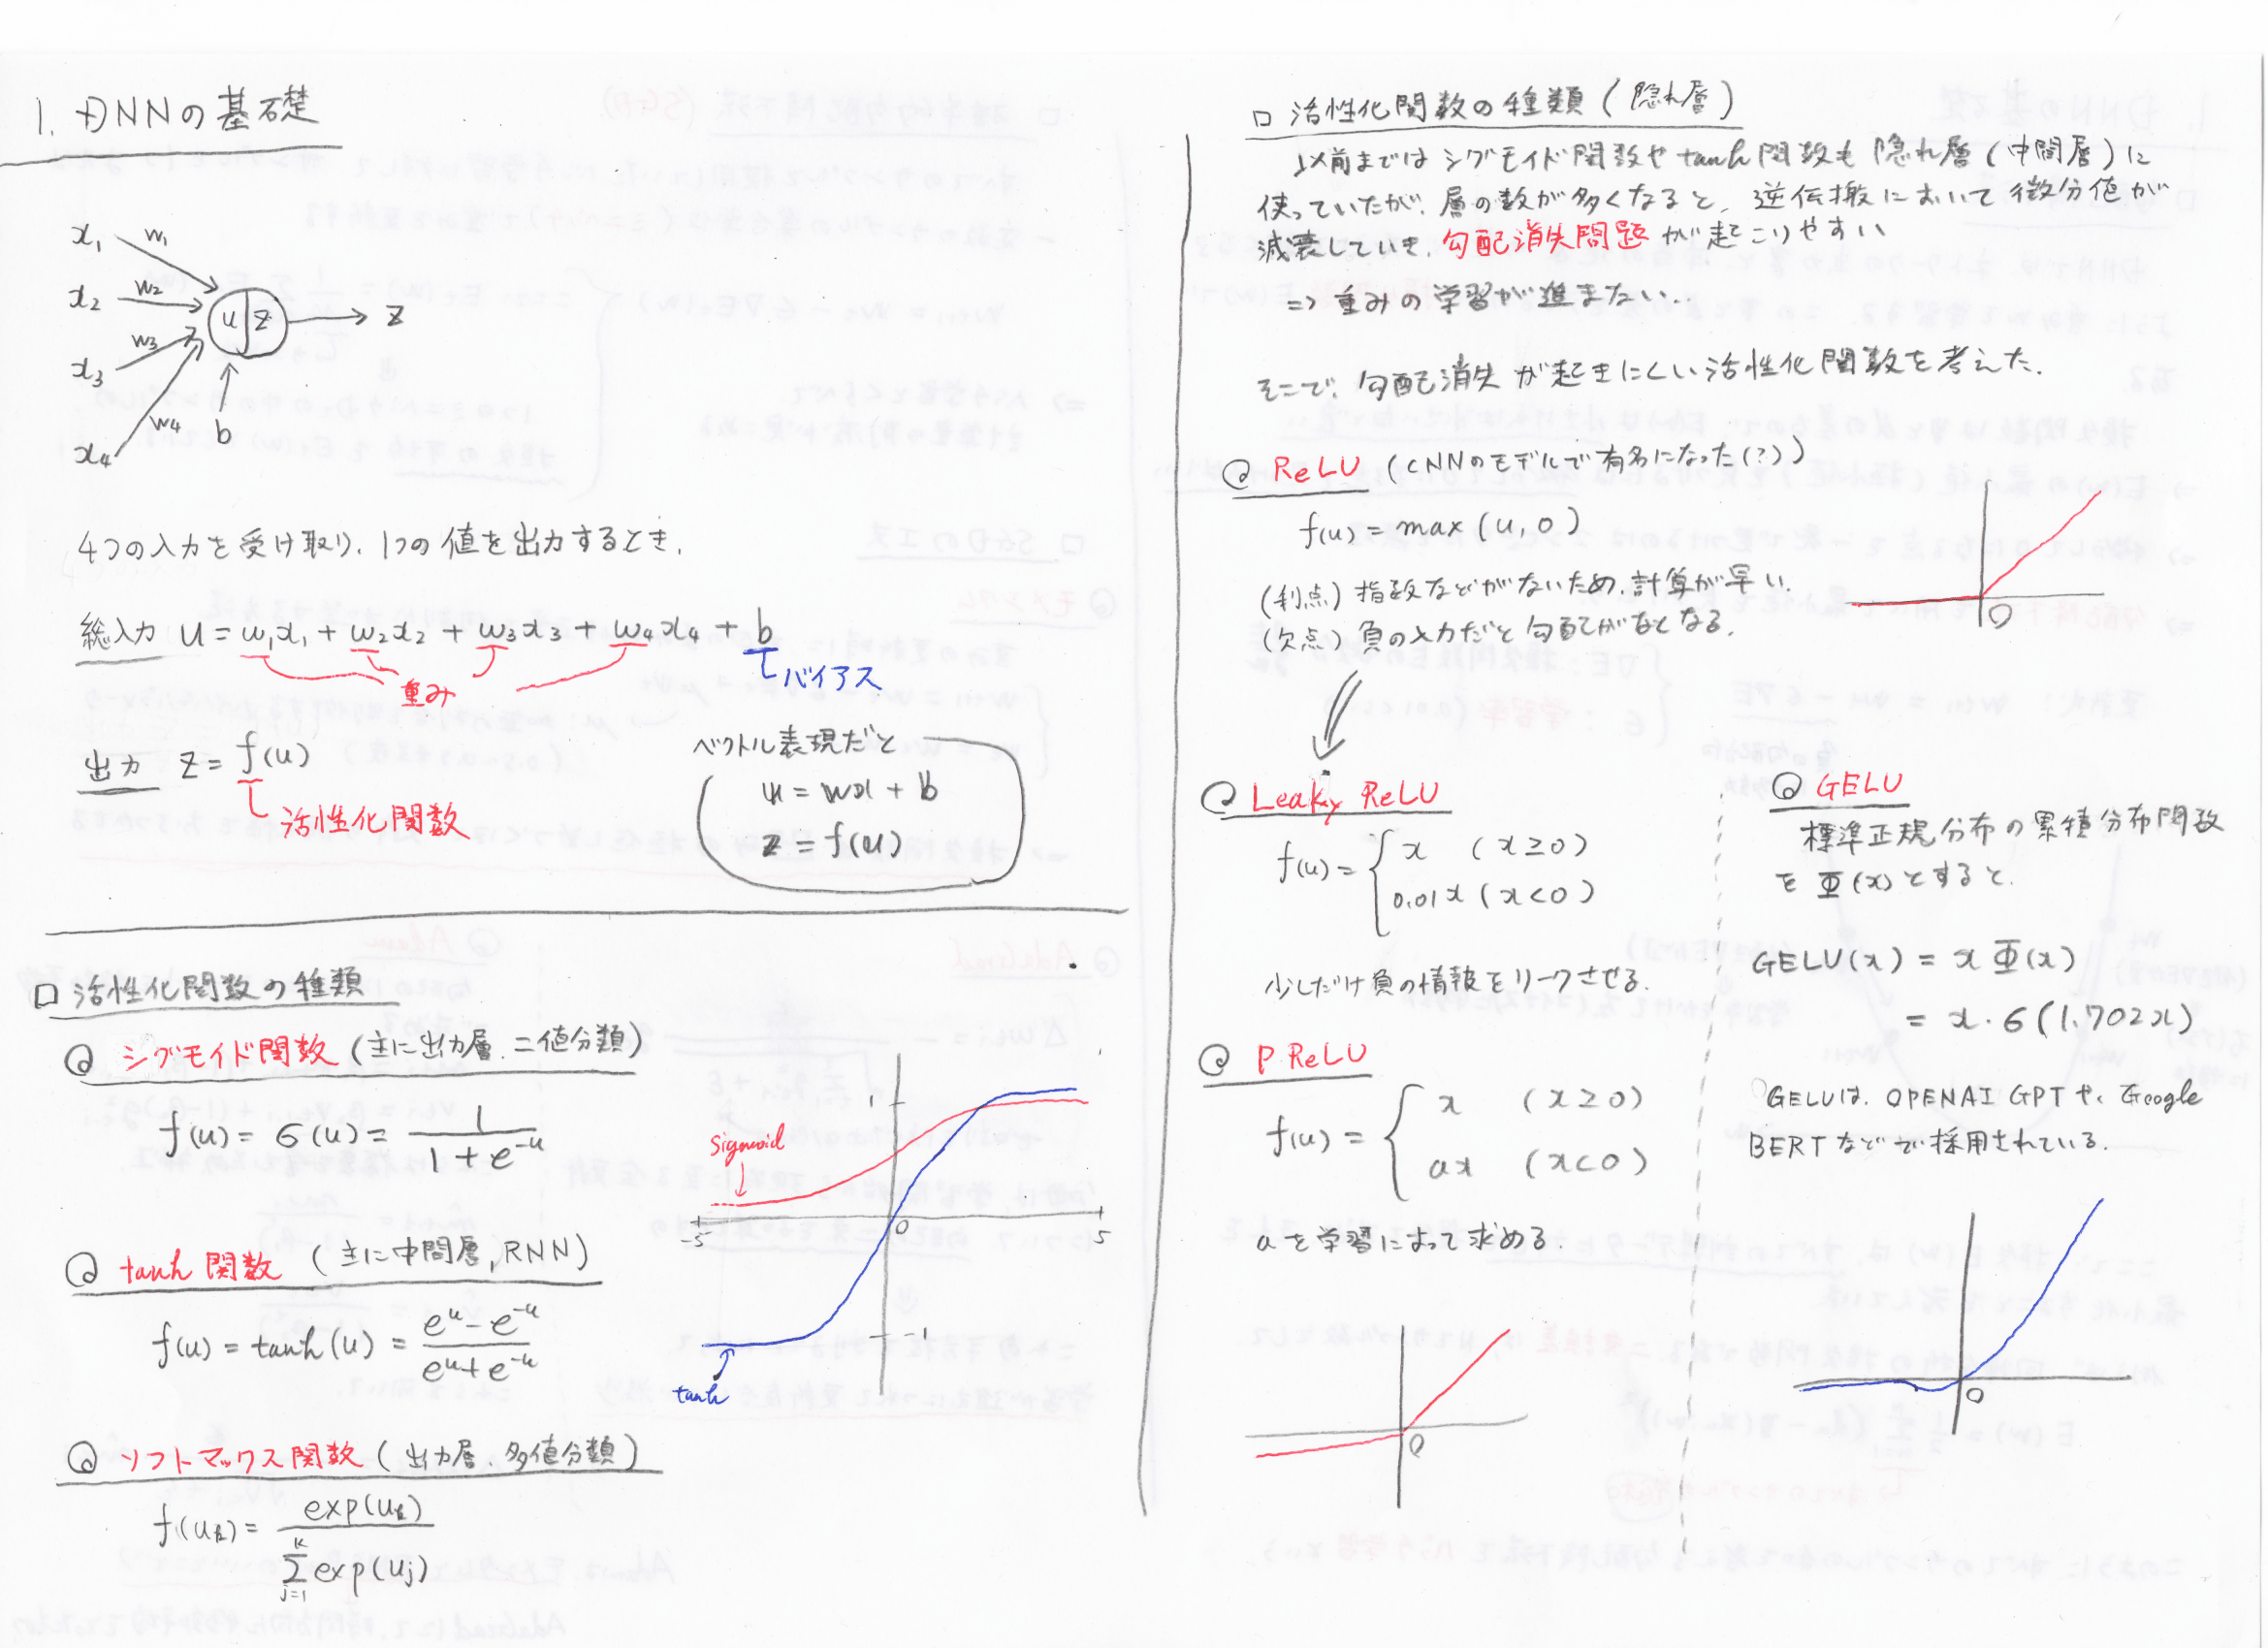 1. DNNの基礎
x1 w1
x2 w2
x3 w3
x4 w4
u z
z
b
4つの入力を受け取り、1つの値を出力するとき、
総入力 u = w1x1 + w2x2 + w3x3 + w4x4 + b
重み
バイアス
出力 z = f(u)
活性化関数
ベクトル表現だと
u = wx + b
z = f(u)
□ 活性化関数の種類
シグモイド関数 (主に出力層、二値分類)
f(u) = σ(u) = 1 / (1 + e^-u)
sigmoid
1
-5
0
5
-1
tanh
tanh 関数 (主に中間層, RNN)
f(u) = tanh(u) = (e^u - e^-u) / (e^u + e^-u)
ソフトマックス関数 (出力層 多値分類)
f(uk) = exp(uk) / Σ_{j=1}^{K} exp(uj)
□ 活性化関数の種類 (隠れ層)
以前まではシグモイド関数やtanh関数も隠れ層(中間層)に
使っていたが、層の数が多くなると、逆伝搬において微分値が
減衰していき、勾配消失問題が起こりやすい
⇒ 重みの学習が進まない..
そこで、勾配消失が起きにくい活性化関数を考えた.
ReLU (CNNのモデルで有名になった(?))
f(u) = max(u, 0)
0
(利点) 指数などがないため、計算が早い.
(欠点) 負の入力だと勾配が0となる.
Leaky ReLU
f(u) = { x (x≥0)
0.01x (x<0)
少しだけ負の情報をリークさせる.
P ReLU
f(u) = { x (x≥0)
ax (x<0)
aを学習によって求める.
0
GELU
標準正規分布の累積分布関数
をΦ(x)とすると、
GELU(x) = xΦ(x)
= x・σ(1.702x)
GELUは、OPENAI GPTや、Google
BERTなどで採用されている.
0